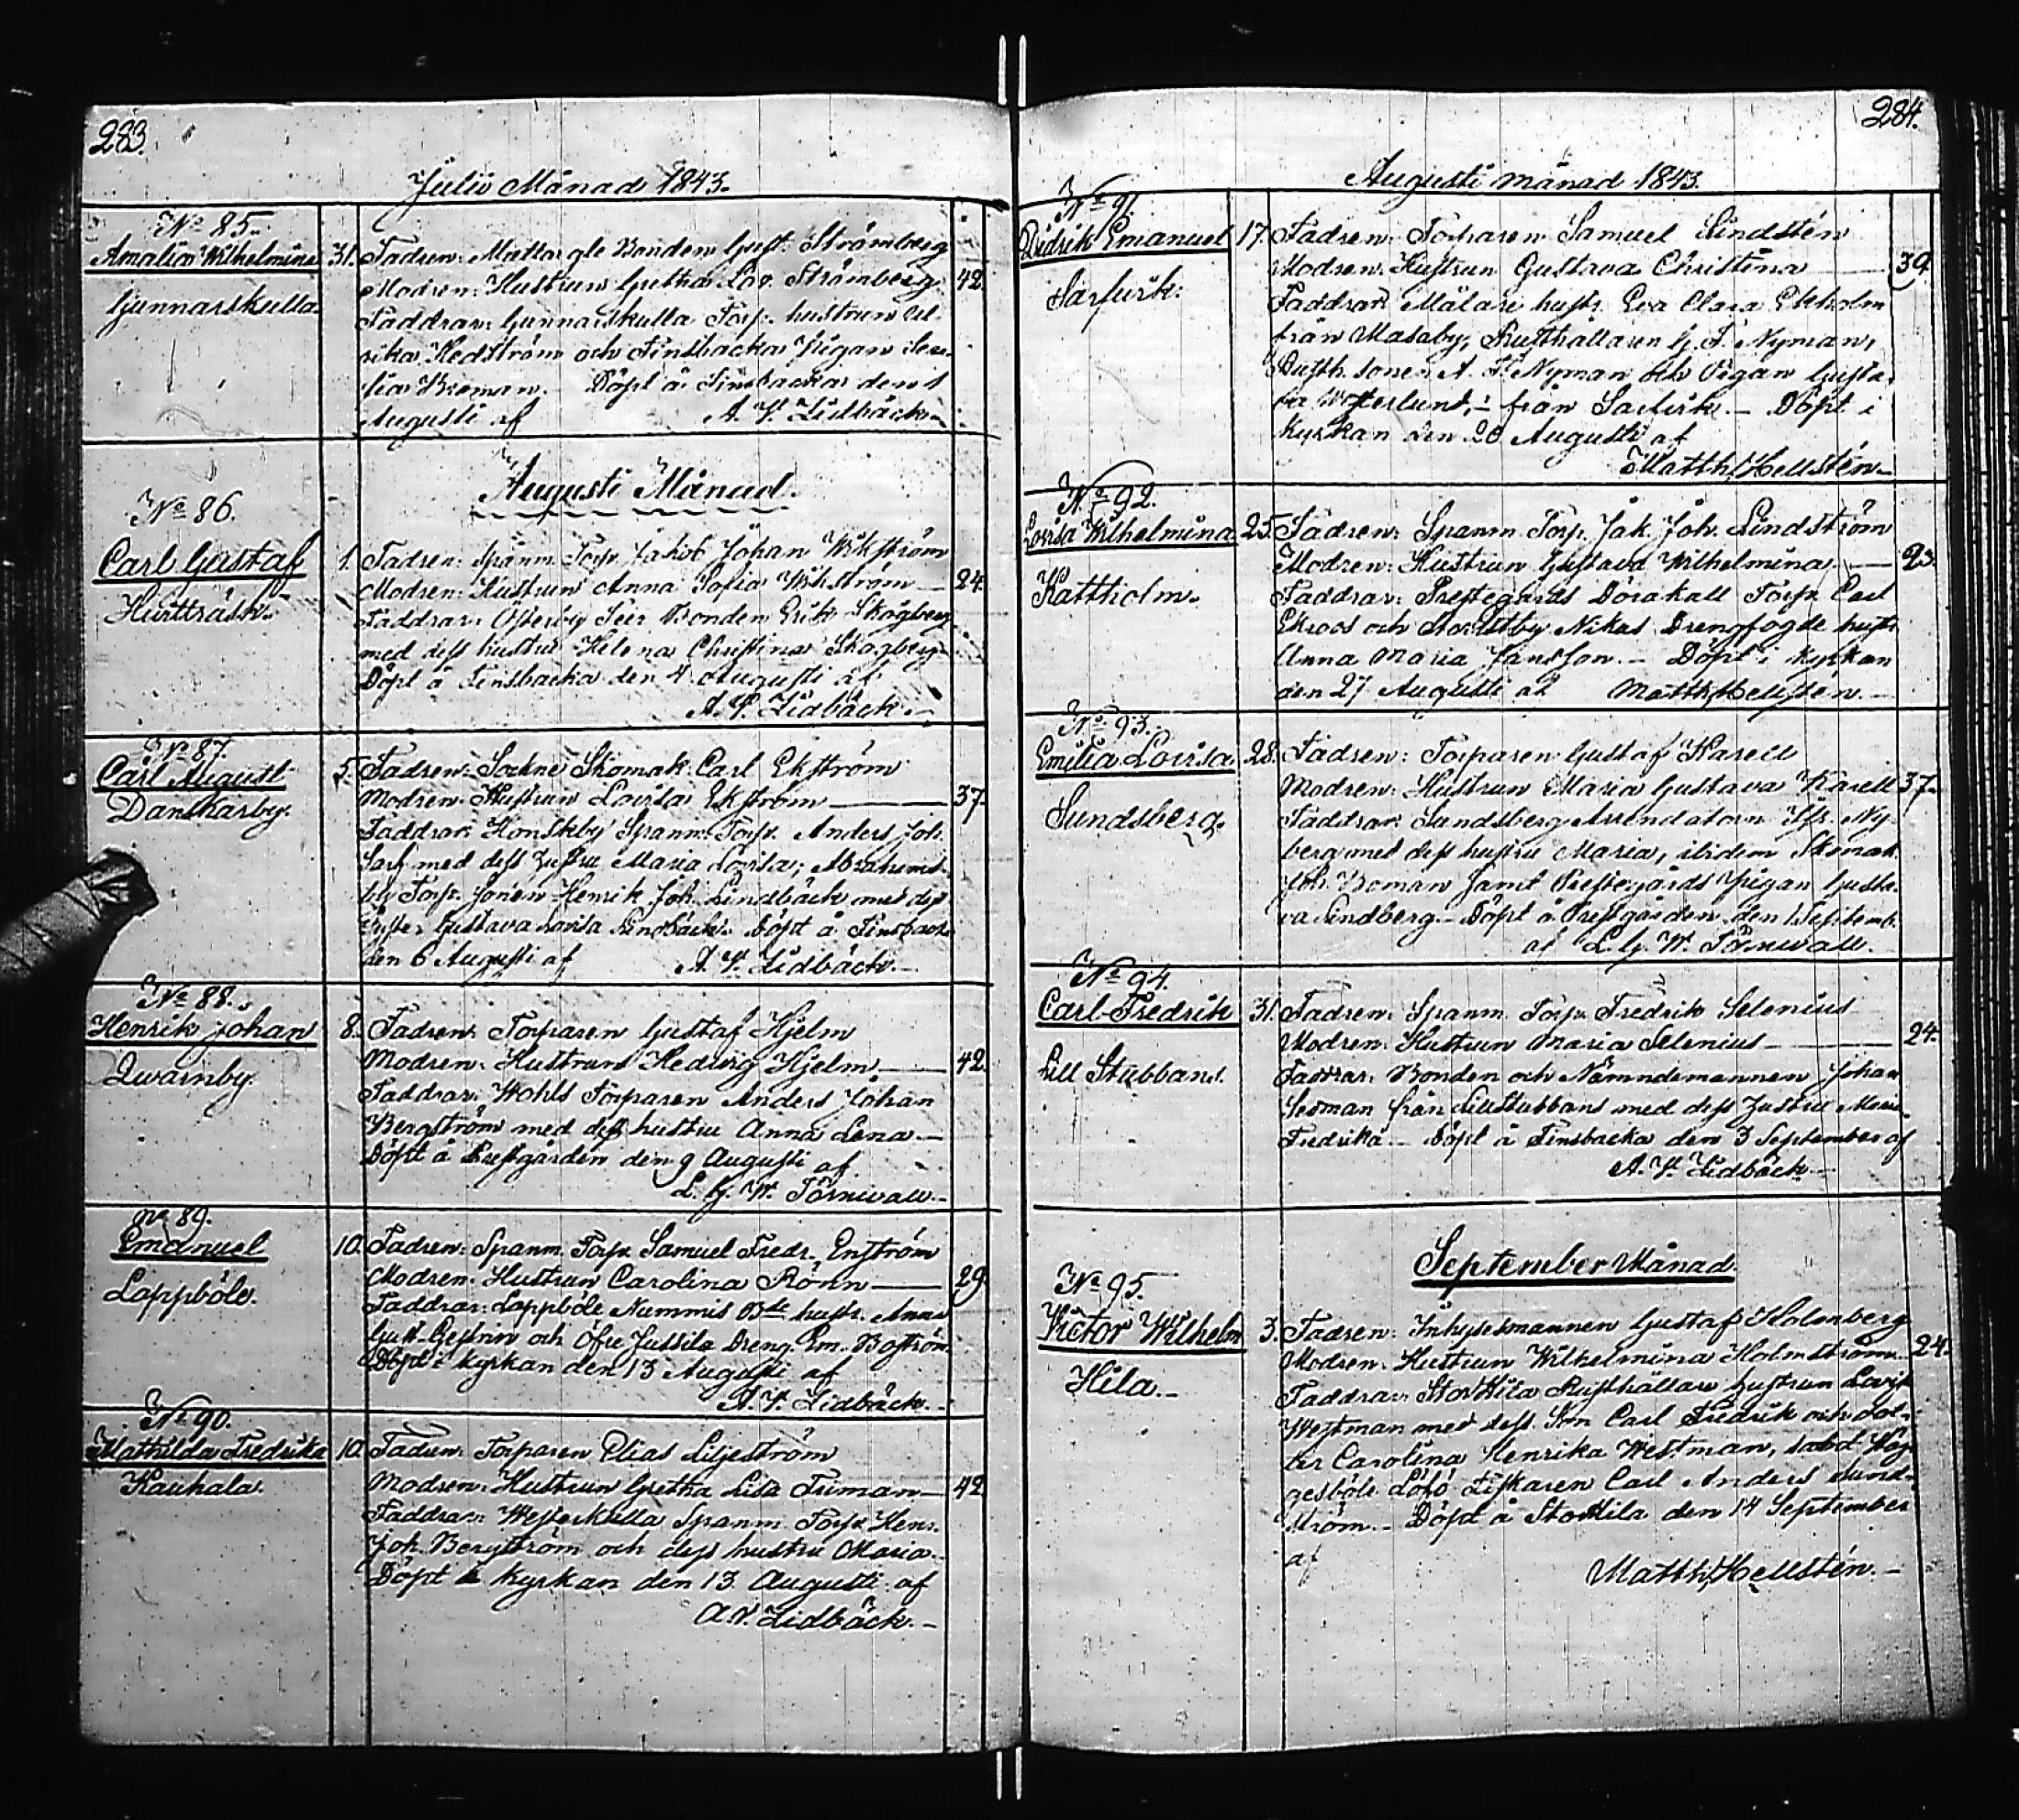 283.
Julii Månad 1843.
No 85.
Amalia Wilhelmina
Gunnarskulla.
31. Fadren: Mattas gle Bonden Gust. Strömberg
Modren: Hustrun Gretha Lov. Strömberg 42.
Faddrar: Gunnarskulla Torp. hustrun Ul-
rika Hedström och Finsbacka Pigan
Broman. Döpt å Finsbacka den 1
Augusti af A. V. Lidbäck.
Augusti Månad.
No 86.
Carl Gustaf
Hurtträsk.
1. Fadren: Spanm. Torp. Jakob Johan Wikström
Modren: Hustrun Anna Sofia Wikström 24.
Faddrar: Österby Bonden Erik Skogberg
med dess hustru Helena Christina Skogberg
Döpt å Finsbacka den 4 Augusti af
A. V. Lidbäck.
No 87.
Carl August
Danskarby.
5. Fadren: Sockne Skomak. Carl Ekström
Modren: Hustrun Lovisa Ekström 37.
Faddrar: Honskby Spanm. Torp. Anders Joh.
med dess hustru Maria Lovisa; Abrahams-
by Torp. sonen Henrik Joh. Lindbäck med dess
Gustava Lovisa Lindbäck. Döpt å Finsbacka
den 6 Augusti af A. V. Lidbäck.
No 88.
Henrik Johan
Qwarnby.
8. Fadren: Torparen Gustaf Hjelm
Modren: Hustrun Hedvig Hjelm 42.
Faddrar: Wohls Torparen Anders Johan
Bergström med dess hustru Anna Lena.
Döpt å Prestgården den 9 Augusti af
L. G. W. Törnwall.
No 89.
Emanuel
Lappböle.
10. Fadren: Spanm. Torp. Samuel Fredr. Enström
Modren: Hustrun Carolina Rönn 29.
Faddrar: Lappböle Nummis Bde hustr. Anna
Gust. och Öfre Jussila Dreng. Em. Boström
Döpt i kyrkan den 13 Augusti af
A. V. Lidbäck.
No 90.
Mathilda Fredrika
Kauhala.
10. Fadren: Torparen Elias Liljeström
Modren: Hustrun Gretha Lisa Friman 42.
Faddrar: Westerkulla Spanm. Torp. Henr.
Joh. Bergström och dess hustru Maria.
Döpt i kyrkan den 13 Augusti af
A. V. Lidbäck.
284.
Augusti månad 1843.
No 91.
Didrik Emanuel
Sarfvik.
17. Fadren: Torparen Samuel Lindstén
Modren: Hustrun Gustava Christina 39.
Faddrar: Målare hustr. Eva Clara Ekholm
från Masaby, Rusthållaren G. F. Nyman,
Rusth. sonen A. F. Nyman och Pigan Gusta-
va Westerlund, från Sarfvik. Döpt i
kyrkan den 20 Augusti af
Matth. Hellstén.
No 92.
Lovisa Wilhelmina
Kattholm.
25. Fadren: Spanm. Torp. Jak. Joh. Lindström
Modren: Hustrun Gustava Wilhelmina 23.
Faddrar: Prestegårds Torp. Carl
Ekroos och Nikus Drengfogde hustr.
Anna Maria Jansson. Döpt i kyrkan
den 27 Augusti af Matth. Hellstén.
No 93.
Emilia Lovisa
Sundsberg.
28. Fadren: Torparen Gustaf Karell
Modren: Hustrun Maria Gustava Karell 37.
Faddrar: Sundsberg Arrendatorn Ny-
berg med dess hustru Maria, ibidem Skomak.
Joh. Boman samt Prestegårds Pigan Gusta-
va Lindberg. Döpt å Prestgården den 1 Septemb.
af L. G. W. Törnwall.
No 94.
Carl Fredrik
Lill Stubbans.
31. Fadren: Spanm. Torp. Fredrik Selenius
Modren: Hustrun Maria Selenius 24.
Faddrar: Bonden och Nämndemannen Johan
från Lillstubbans med dess hustru Maria
Fredrika. Döpt å Finsbacka den 3 September af
A. V. Lidbäck.
September Månad.
No 95.
Victor Wilhelm
Hila.
3. Fadren: Inhysesmannen Gustaf Holmberg
Modren: Hustrun Wilhelmina Holmström 24.
Faddrar: Stor Hila Rusthållare hustrun Lovisa
Westman med dess Son Carl Fredrik och dot-
ter Carolina Henrika Westman, samt
Löfö Fiskaren Carl Anders Sund-
ström. Döpt å StorHila den 14 September
af Matth. Hellstén.